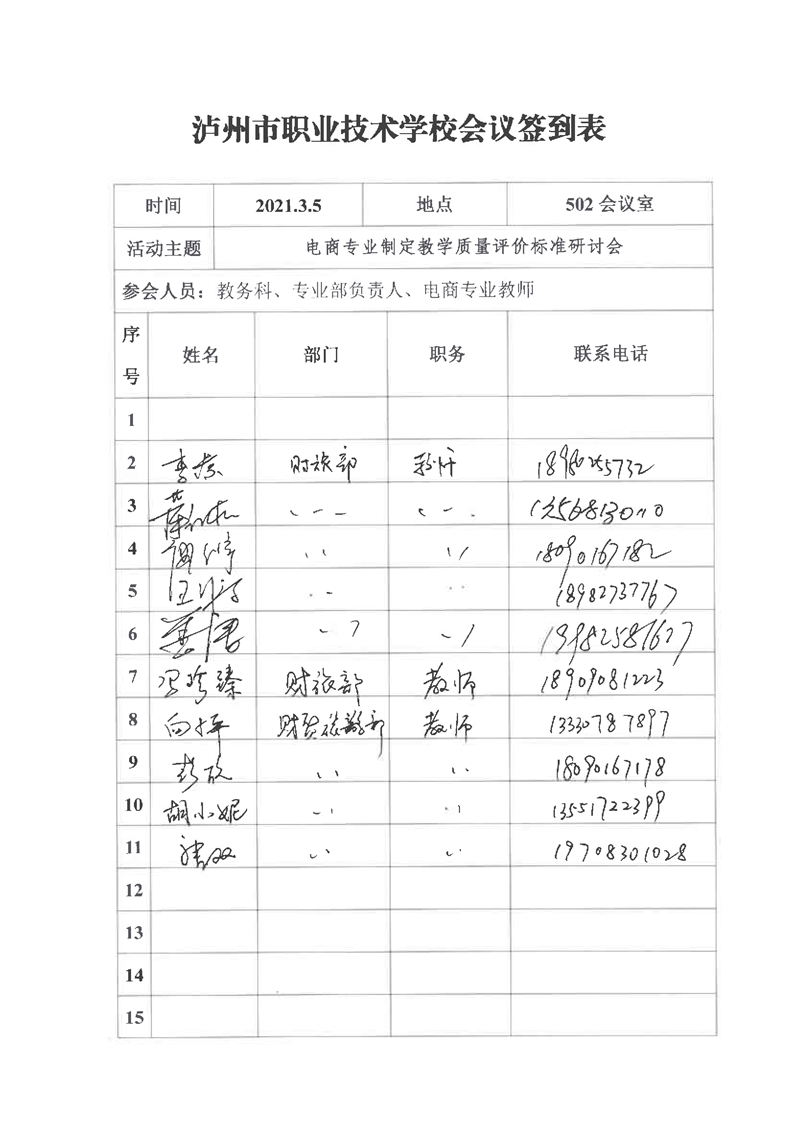 泸州市职业技术学校会议签到表
时间 2021.3.5 地点 502 会议室
活动主题 电商专业制定教学质量评价标准研讨会
参会人员：教务科、专业部负责人、电商专业教师
序号 姓名 部门 职务 联系电话
1
2 财旅部
3
4 18090167182
5 18982737767
6 19982581627
7 财旅部 教师 18909081223
8 向坪 财贸旅游部 教师 13330787897
9 彭欣 18090167178
10 胡小妮 13551722399
11 19708301028
12
13
14
15